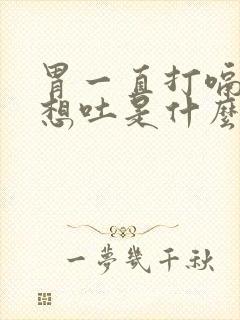 胃一直打嗝
想吐是什麼
一夢幾千秋